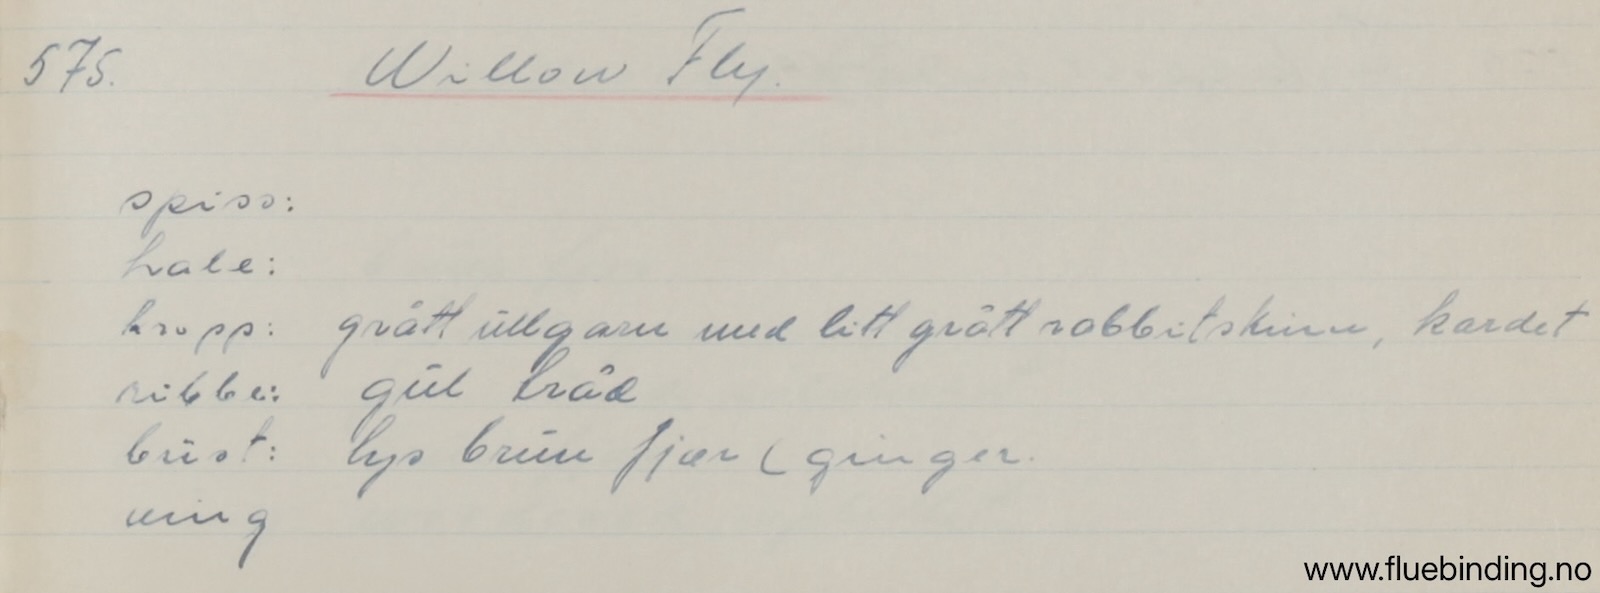 575. Willow Fly.
spiss:
hale:
kropp: grått ullgarn med litt grått rabbitskinn, kardet
ribbe: gul tråd
bust: lys brun fjær (ginger.
ving
www.fluebinding.no